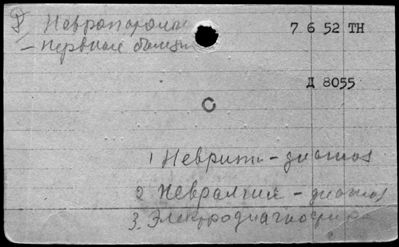 Невропатолог
7 6 52 ТН
– нервные болезни
Д 8055
1 Невриты – диагноз
2 Невралгии – диагноз
3. Электродиагностика